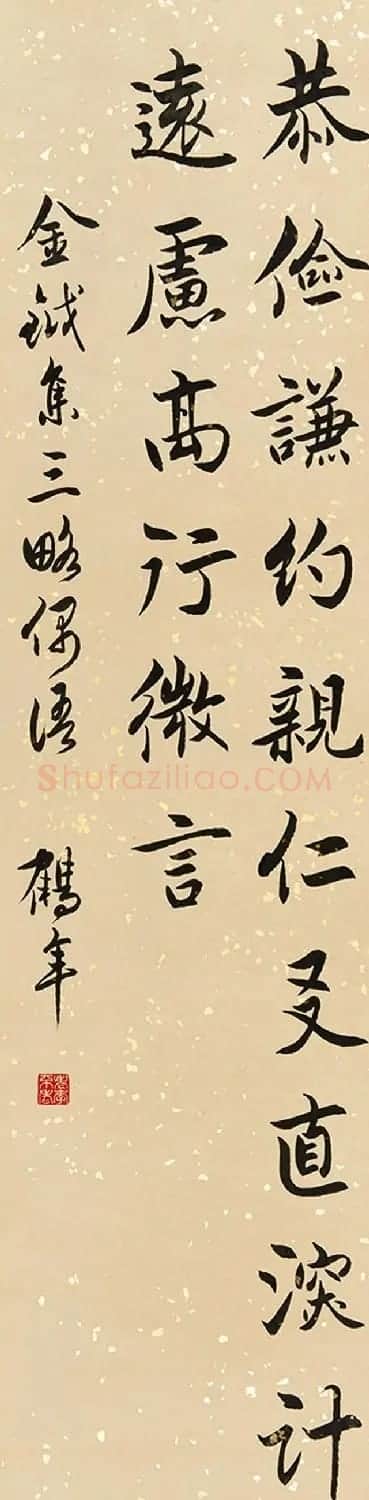 恭儉謙約親仁友直深計
遠慮高行微言
金鉞集三略偶語 鶴年
Shufaziliao.COM